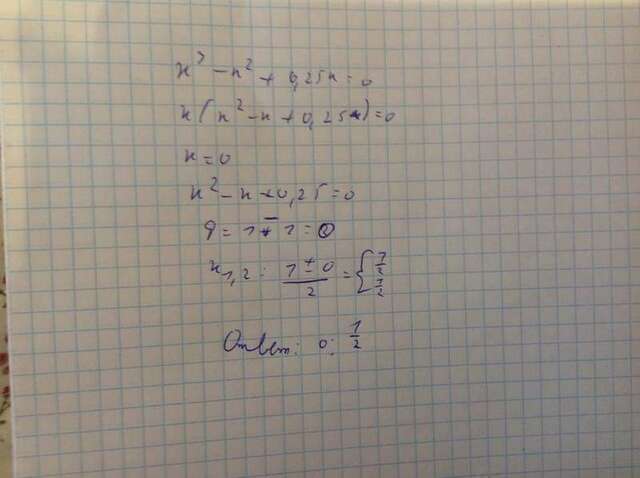 x³ - x² + 0,25x = 0
x(x² - x + 0,25) = 0
x = 0
x² - x + 0,25 = 0
D = 1 - 1 = 0
x₁,₂ = (1 ± 0)/2 = { 1/2 1/2
Ответ: 0; 1/2